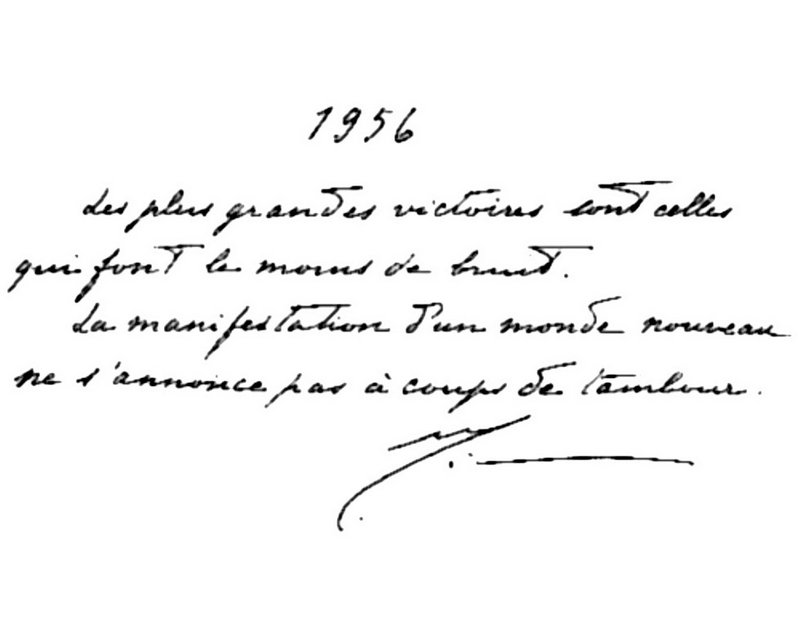 1956
Les plus grandes victoires sont celles
qui font le moins de bruit.
La manifestation d'un monde nouveau
ne s'annonce pas à coups de tambour.